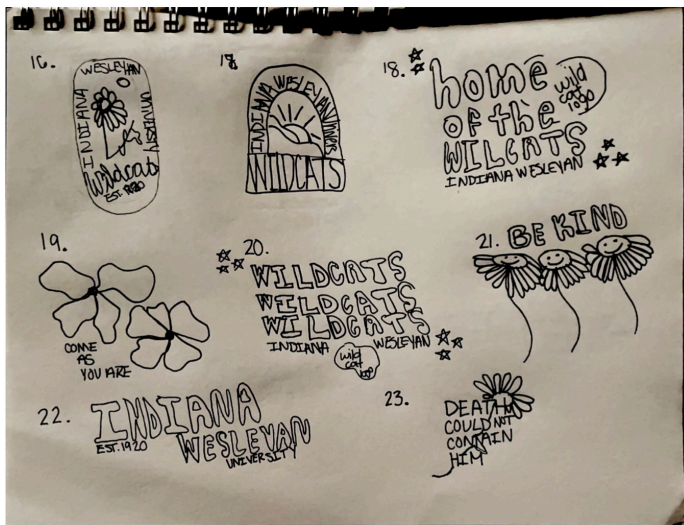 16.
WESLEYAN
INDIANA
UNIVERSITY
Wildcats
EST. 1920
17.
INDIANA WESLEYAN
WILDCATS
18.
home
of the
WILCATS
INDIANA WESLEYAN
wild
cat
logo
19.
COME
AS
YOU ARE
20.
WILDCATS
WILDCATS
WILDCATS
INDIANA WESLEYAN
wild
cat
logo
21. BE KIND
22. INDIANA
EST. 1920
WESLEYAN
UNIVERSITY
23.
DEATH
COULD NOT
CONTAIN
HIM